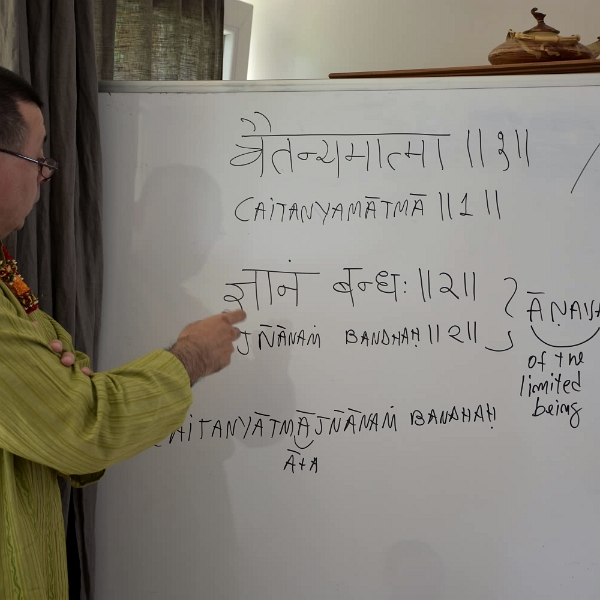 चैतन्यमात्मा ॥१॥
CAITANYAMĀTMĀ ||1||
ज्ञानं बन्धः ॥२॥
JÑĀNAṀ BANDHAḤ ||2||
ĀṆAVA
of the
limited
being
CAITANYĀTMĀJÑĀNAṀ BANDHAḤ
Ā+A